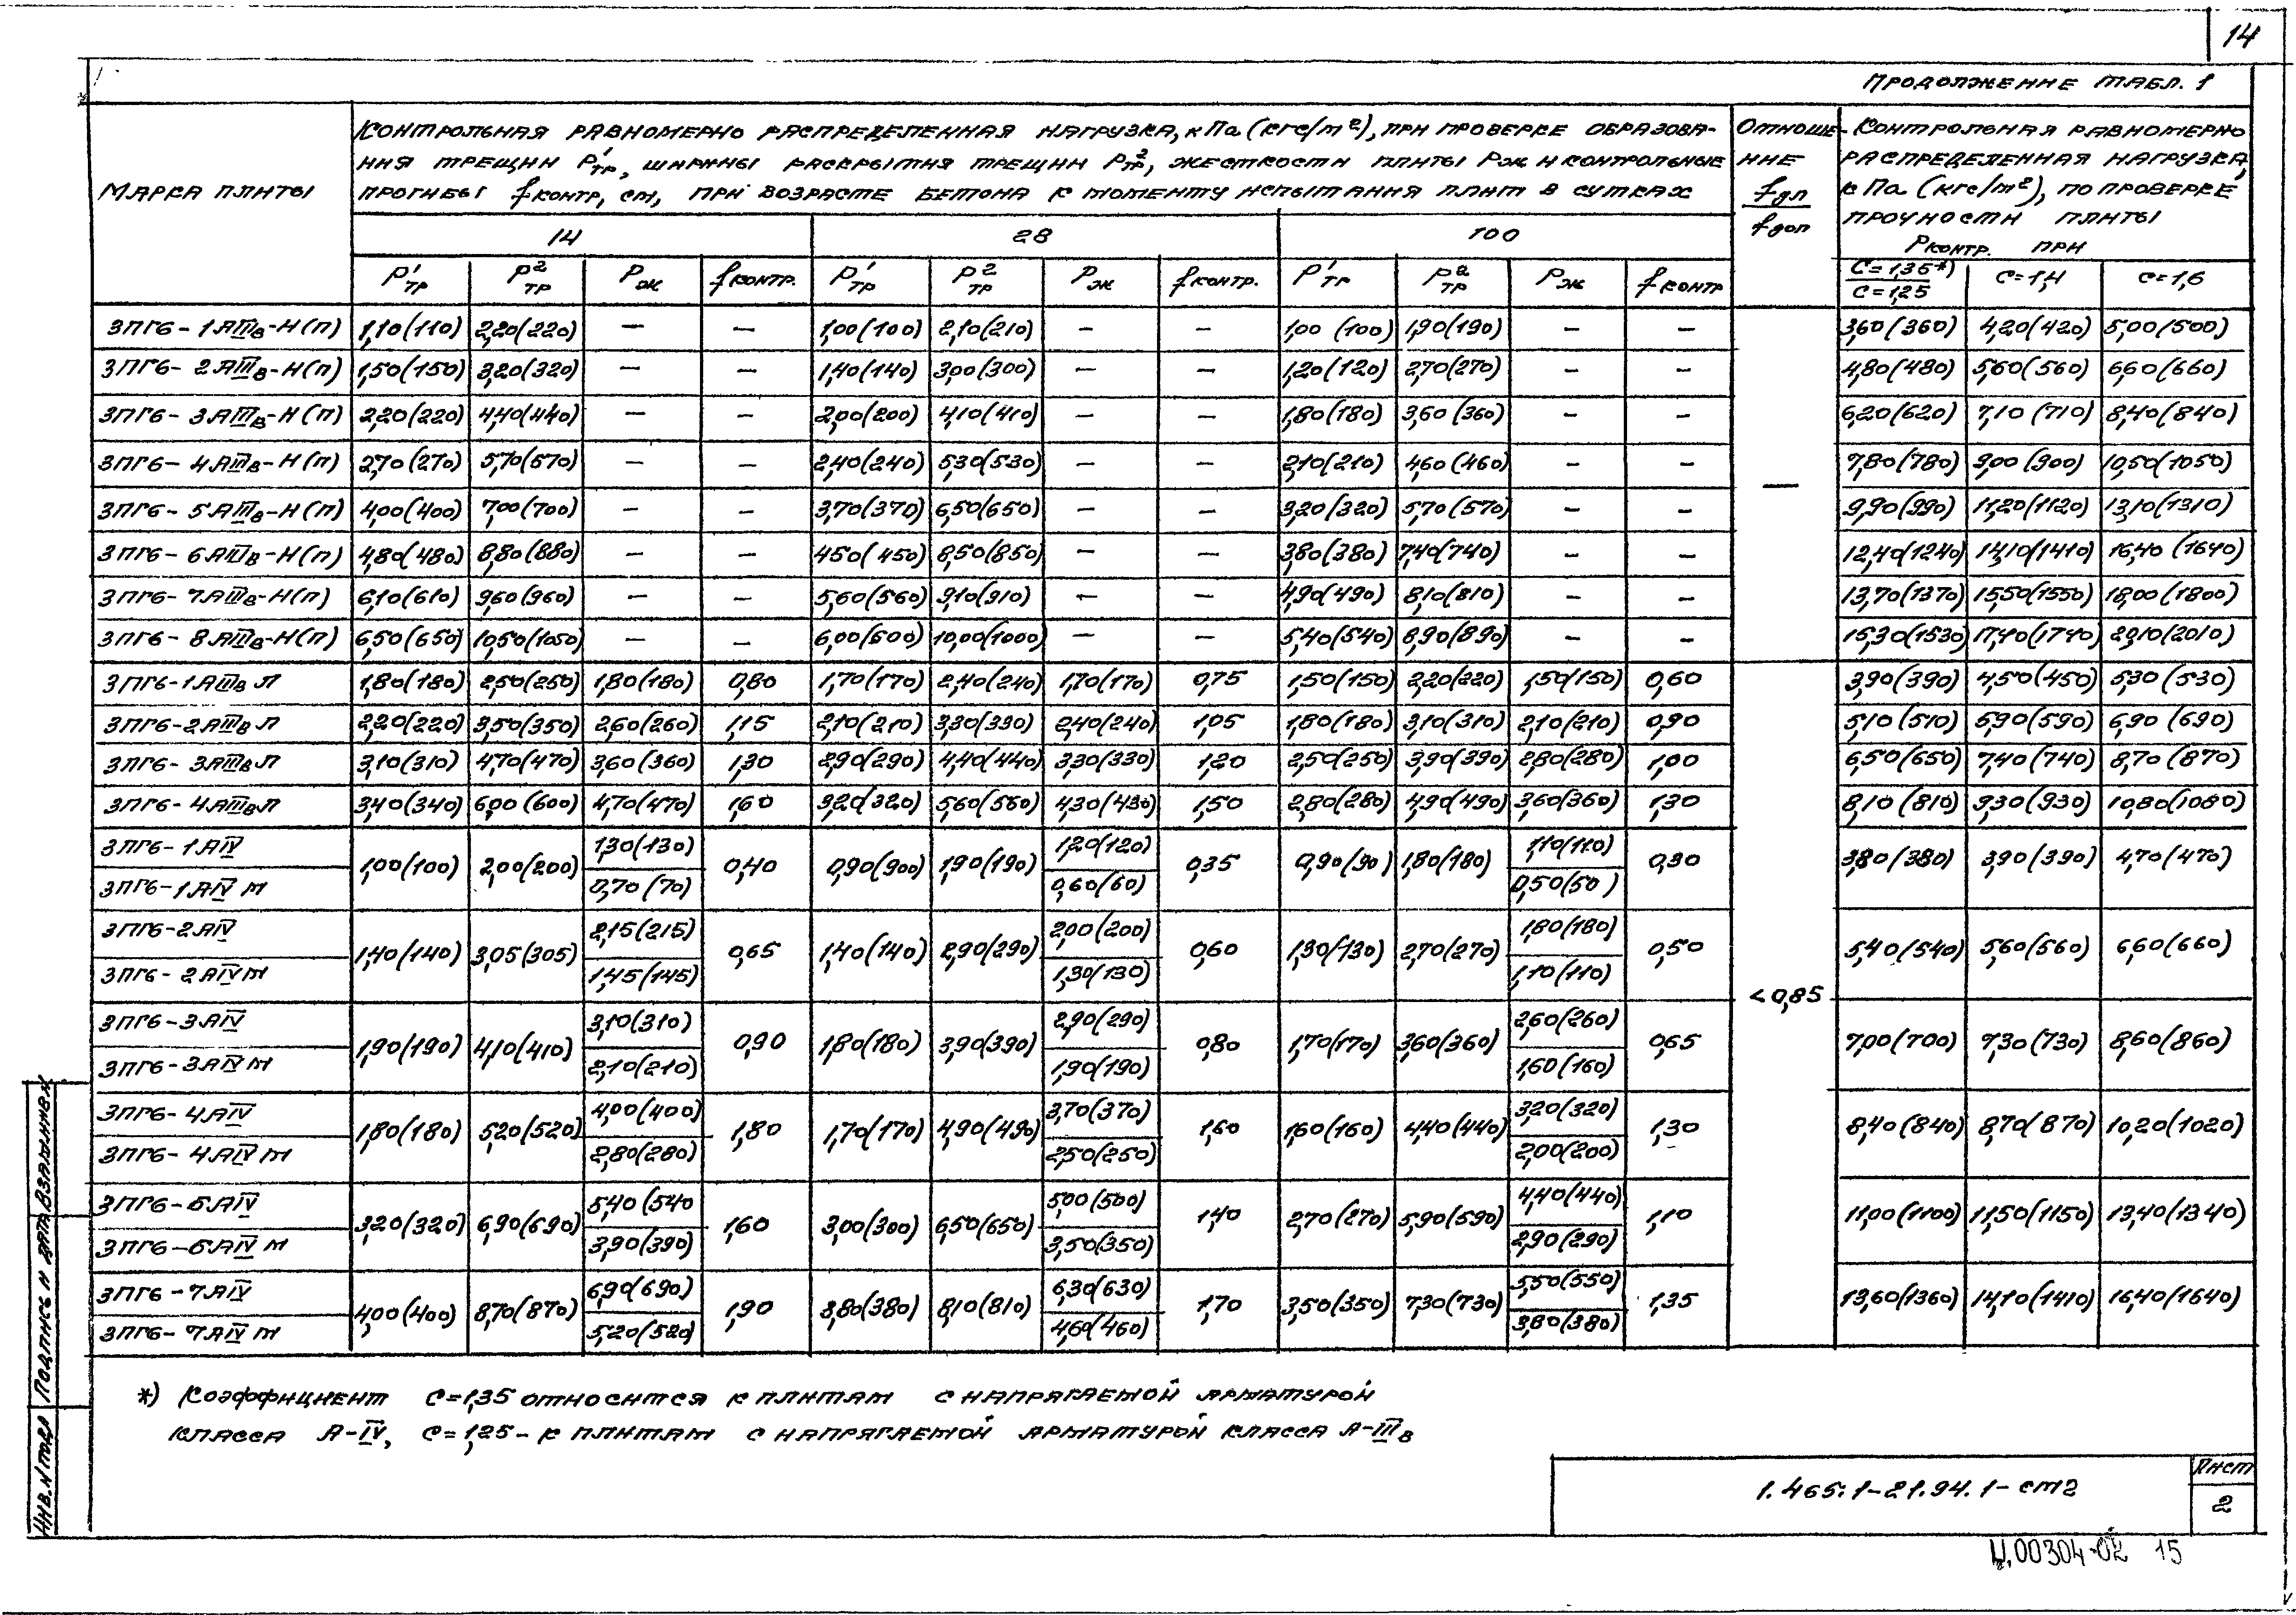 14
Продолжение табл. 1
Марка плиты
Контрольная равномерно распределенная нагрузка, кПа (кгс/м²), при проверке образова-
ния трещин P¹тр, ширины раскрытия трещин P²тр, жесткости плиты Pж и контрольные
прогибы fконтр, см, при возрасте бетона к моменту испытания плит в сутках
Отноше-
ние
fдл
fдоп
Контрольная равномерно
распределенная нагрузка,
кПа (кгс/м²), по проверке
прочности плиты
Pконтр. при
14 28 100
P¹тр P²тр Pж fконтр. P¹тр P²тр Pж fконтр. P¹тр P²тр Pж fконтр C=1,35*) C=1,4 C=1,6
C=1,25
3ПГ6-1АIIIв-Н(П) 1,10(110) 2,20(220) — — 1,00(100) 2,10(210) — — 1,00 (100) 1,90(190) — — 3,60(360) 4,20(420) 5,00(500)
3ПГ6-2АIIIв-Н(П) 1,50(150) 3,20(320) — — 1,40(140) 3,00(300) — — 1,20(120) 2,70(270) — — 4,80(480) 5,60(560) 6,60(660)
3ПГ6-3АIIIв-Н(П) 2,20(220) 4,40(440) — — 2,00(200) 4,10(410) — — 1,80(180) 3,60(360) — — 6,20(620) 7,10(710) 8,40(840)
3ПГ6-4АIIIв-Н(П) 2,70(270) 5,70(570) — — 2,40(240) 5,30(530) — — 2,10(210) 4,60(460) — — 7,80(780) 9,00(900) 10,50(1050)
—
3ПГ6-5АIIIв-Н(П) 4,00(400) 7,00(700) — — 3,70(370) 6,50(650) — — 3,20(320) 5,70(570) — — 9,90(990) 11,20(1120) 13,10(1310)
3ПГ6-6АIIIв-Н(П) 4,80(480) 8,80(880) — — 4,50(450) 8,50(850) — — 3,80(380) 7,40(740) — — 12,40(1240) 14,10(1410) 16,40(1640)
3ПГ6-7АIIIв-Н(П) 6,10(610) 9,60(960) — — 5,60(560) 9,10(910) — — 4,90(490) 8,10(810) — — 13,70(1370) 15,50(1550) 18,00(1800)
3ПГ6-8АIIIв-Н(П) 6,50(650) 10,50(1050) — — 6,00(600) 10,00(1000) — — 5,40(540) 8,90(890) — — 15,30(1530) 17,40(1740) 20,10(2010)
3ПГ6-1АIIIв Л 1,80(180) 2,50(250) 1,80(180) 0,80 1,70(170) 2,40(240) 1,70(170) 0,75 1,50(150) 2,20(220) 1,50(150) 0,60 3,90(390) 4,50(450) 5,30(530)
3ПГ6-2АIIIв Л 2,20(220) 3,50(350) 2,60(260) 1,15 2,10(210) 3,30(330) 2,40(240) 1,05 1,80(180) 3,10(310) 2,10(210) 0,90 5,10(510) 5,90(590) 6,90(690)
3ПГ6-3АIIIв Л 3,10(310) 4,70(470) 3,60(360) 1,30 2,90(290) 4,40(440) 3,30(330) 1,20 2,50(250) 3,90(390) 2,80(280) 1,00 6,50(650) 7,40(740) 8,70(870)
3ПГ6-4АIIIв Л 3,40(340) 6,00(600) 4,70(470) 1,60 3,20(320) 5,60(560) 4,30(430) 1,50 2,80(280) 4,90(490) 3,60(360) 1,30 8,10(810) 9,30(930) 10,80(1080)
3ПГ6-1АIV 1,30(130) 1,20(120) 1,10(110)
1,00(100) 2,00(200) 0,40 0,90(900) 1,90(190) 0,35 0,90(90) 1,80(180) 0,30 3,80(380) 3,90(390) 4,70(470)
3ПГ6-1АIV т 0,70(70) 0,60(60) 0,50(50)
3ПГ6-2АIV 2,15(215) 2,00(200) 1,80(180)
1,40(140) 3,05(305) 0,65 1,40(140) 2,90(290) 0,60 1,30(130) 2,70(270) 0,50 5,40(540) 5,60(560) 6,60(660)
3ПГ6-2АIV т 1,45(145) 1,30(130) 1,10(110)
<0,85
3ПГ6-3АIV 3,10(310) 2,90(290) 2,60(260)
1,90(190) 4,10(410) 0,90 1,80(180) 3,90(390) 0,80 1,70(170) 3,60(360) 0,65 7,00(700) 7,30(730) 8,60(860)
3ПГ6-3АIV т 2,10(210) 1,90(190) 1,60(160)
3ПГ6-4АIV 4,00(400) 3,70(370) 3,20(320)
1,80(180) 5,20(520) 1,80 1,70(170) 4,90(490) 1,60 1,60(160) 4,40(440) 1,30 8,40(840) 8,70(870) 10,20(1020)
3ПГ6-4АIV т 2,80(280) 2,50(250) 2,00(200)
3ПГ6-5АIV 5,40(540 5,00(500) 4,40(440)
3,20(320) 6,90(690) 1,60 3,00(300) 6,50(650) 1,40 2,70(270) 5,90(590) 1,10 11,00(1100) 11,50(1150) 13,40(1340)
3ПГ6-5АIV т 3,90(390) 3,50(350) 2,90(290)
3ПГ6-7АIV 6,90(690) 6,30(630) 5,50(550)
4,00(400) 8,70(870) 1,90 3,80(380) 8,10(810) 1,70 3,50(350) 7,30(730) 1,35 13,60(1360) 14,10(1410) 16,40(1640)
3ПГ6-7АIV т 5,20(520) 4,60(460) 3,80(380)
*) Коэффициент C=1,35 относится к плитам с напрягаемой арматурой
класса А-IV, C=1,25 - к плитам с напрягаемой арматурой класса А-IIIв
1.465.1-21.94.1-см2
Лист
2
Инв. N подл Подпись и дата Взам.инв.N
Ц.00304-02 15